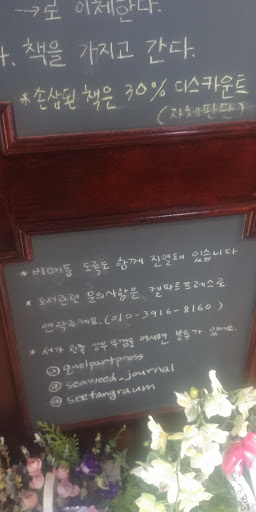 →로 이체한다.
4. 책을 가지고 간다.
* 손상된 책은 30% 디스카운트
(자체판단)
* 비매품 도록도 함께 진열돼 있습니다
* 도서관련 문의사항은 켈파트프레스로
연락주세요. (010-3916-8160)
* 서가 왼쪽 상부 뚜껑을 여시면 봉투가 있어요.
@quelpartpress
@seaweed_journal
@seetangraum